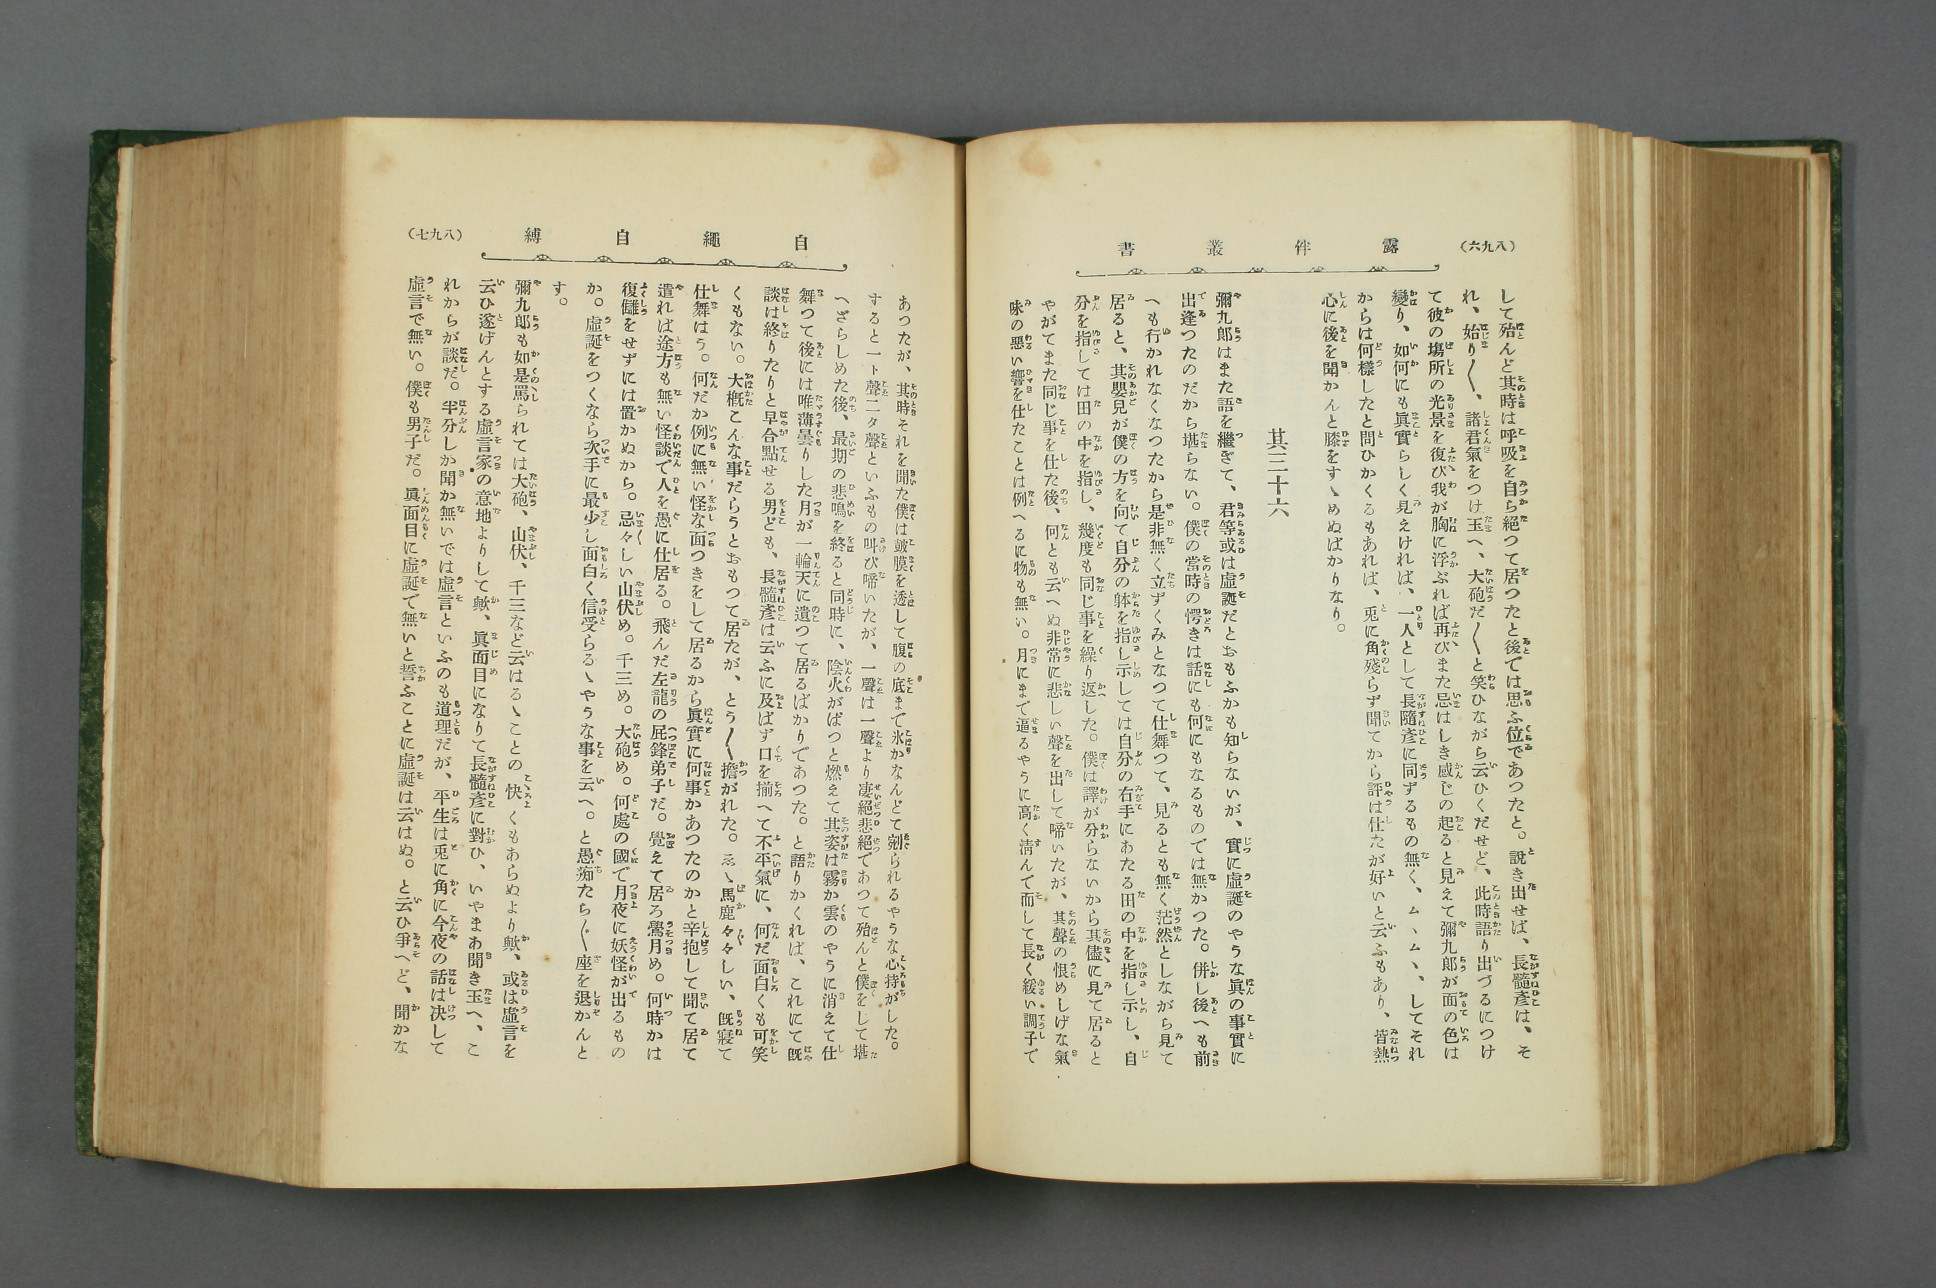 (八九六)
露伴叢書
して殆んど其時は呼吸を自ら絕つて居つたと後では思ふ位であつたと。說き出せば、長髓彥は、そ
れ、始り〳〵、諸君氣をつけ玉へ、大砲だ〳〵と笑ひながら云ひくだせど、此時語り出づるにつけ
て彼の塲所の光景を復び我が胸に浮ぶれば再びまた忌はしき感じの起ると見えて彌九郎が面の色は
變り、如何にも眞實らしく見えければ、一人として長隨彥に同ずるもの無く、ム、ム、、してそれ
からは何樣したと問ひかくるもあれば、兎に角殘らず聞てから評は仕たが好いと云ふもあり、皆熱
心に後を聞かんと膝をすゝめぬばかりなり。
其三十六
彌九郎はまた語を繼ぎて、君等或は虛誕だとおもふかも知らないが、實に虛誕のやうな眞の事實に
出逢つたのだから堪らない。僕の當時の愕きは話にも何にもなるものでは無かつた。併し後へも前
へも行かれなくなつたから是非無く立ずくみとなつて仕舞つて、見るとも無く茫然としながら見て
居ると、其嬰兒が僕の方を向て自分の躰を指し示しては自分の右手にあたる田の中を指し示し、自
分を指しては田の中を指し、幾度も同じ事を繰り返した。僕は譯が分らないから其儘に見て居ると
やがてまた同じ事を仕た後、何とも云へぬ非常に悲しい聲を出して啼いたが、其聲の恨めしげな氣
味の惡い響を仕たことは例へるに物も無い。月にまで逼るやうに高く淸んで而して長く綏い調子で
自繩自縛
(八九七)
あつたが、其時それを聞た僕は皷膜を透して腹の底まで氷かなんどで剜られるやうな心持がした。
すると一ト聲二タ聲といふもの叫び啼いたが、一聲は一聲より凄絕悲絕であつて殆んと僕をして堪
へざらしめた後、最期の悲鳴を終ると同時に、陰火がぱつと燃えて其姿は霧か雲のやうに消えて仕
舞つて後には唯薄曇りした月が一輪天に遺つて居るばかりであつた。と語りかくれば、これにて旣
談は終りたりと早合點せる男ども、長髓彥は云ふに及ばず口を揃へて不平氣に、何だ面白くも可笑
くもない。大槪こんな事だらうとおもつて居たが、とう〳〵擔がれた。ゑゝ馬鹿々々しい、旣寢て
仕舞はう。何だか例に無い怪な面つきをして居るから眞實に何事かあつたのかと辛抱して聞て居て
遣れば途方も無い怪談で人を愚に仕居る。飛んだ左龍の屁鋒弟子だ。覺えて居ろ鶯月め。何時かは
復讎をせずには置かぬから。忌々しい山伏め。千三め。大砲め。何處の國で月夜に妖怪が出るもの
か。虛誕をつくなら次手に最少し面白く信受らるゝやうな事を云へ。と愚痴たら〴〵座を退かんと
す。
彌九郎も如是罵られては大砲、山伏、千三など云はるゝことの快くもあらぬより歟、或は虛言を
云ひ遂げんとする虛言家の意地よりして歟、眞面目になりて長髓彥に對ひ、いやまあ聞き玉へ、こ
れからが談だ。半分しか聞か無いでは虛言といふのも道理だが、平生は兎に角に今夜の話は決して
虛言で無い。僕も男子だ。眞面目に虛誕で無いと誓ふことに虛誕は云はぬ。と云ひ爭へど、聞かな